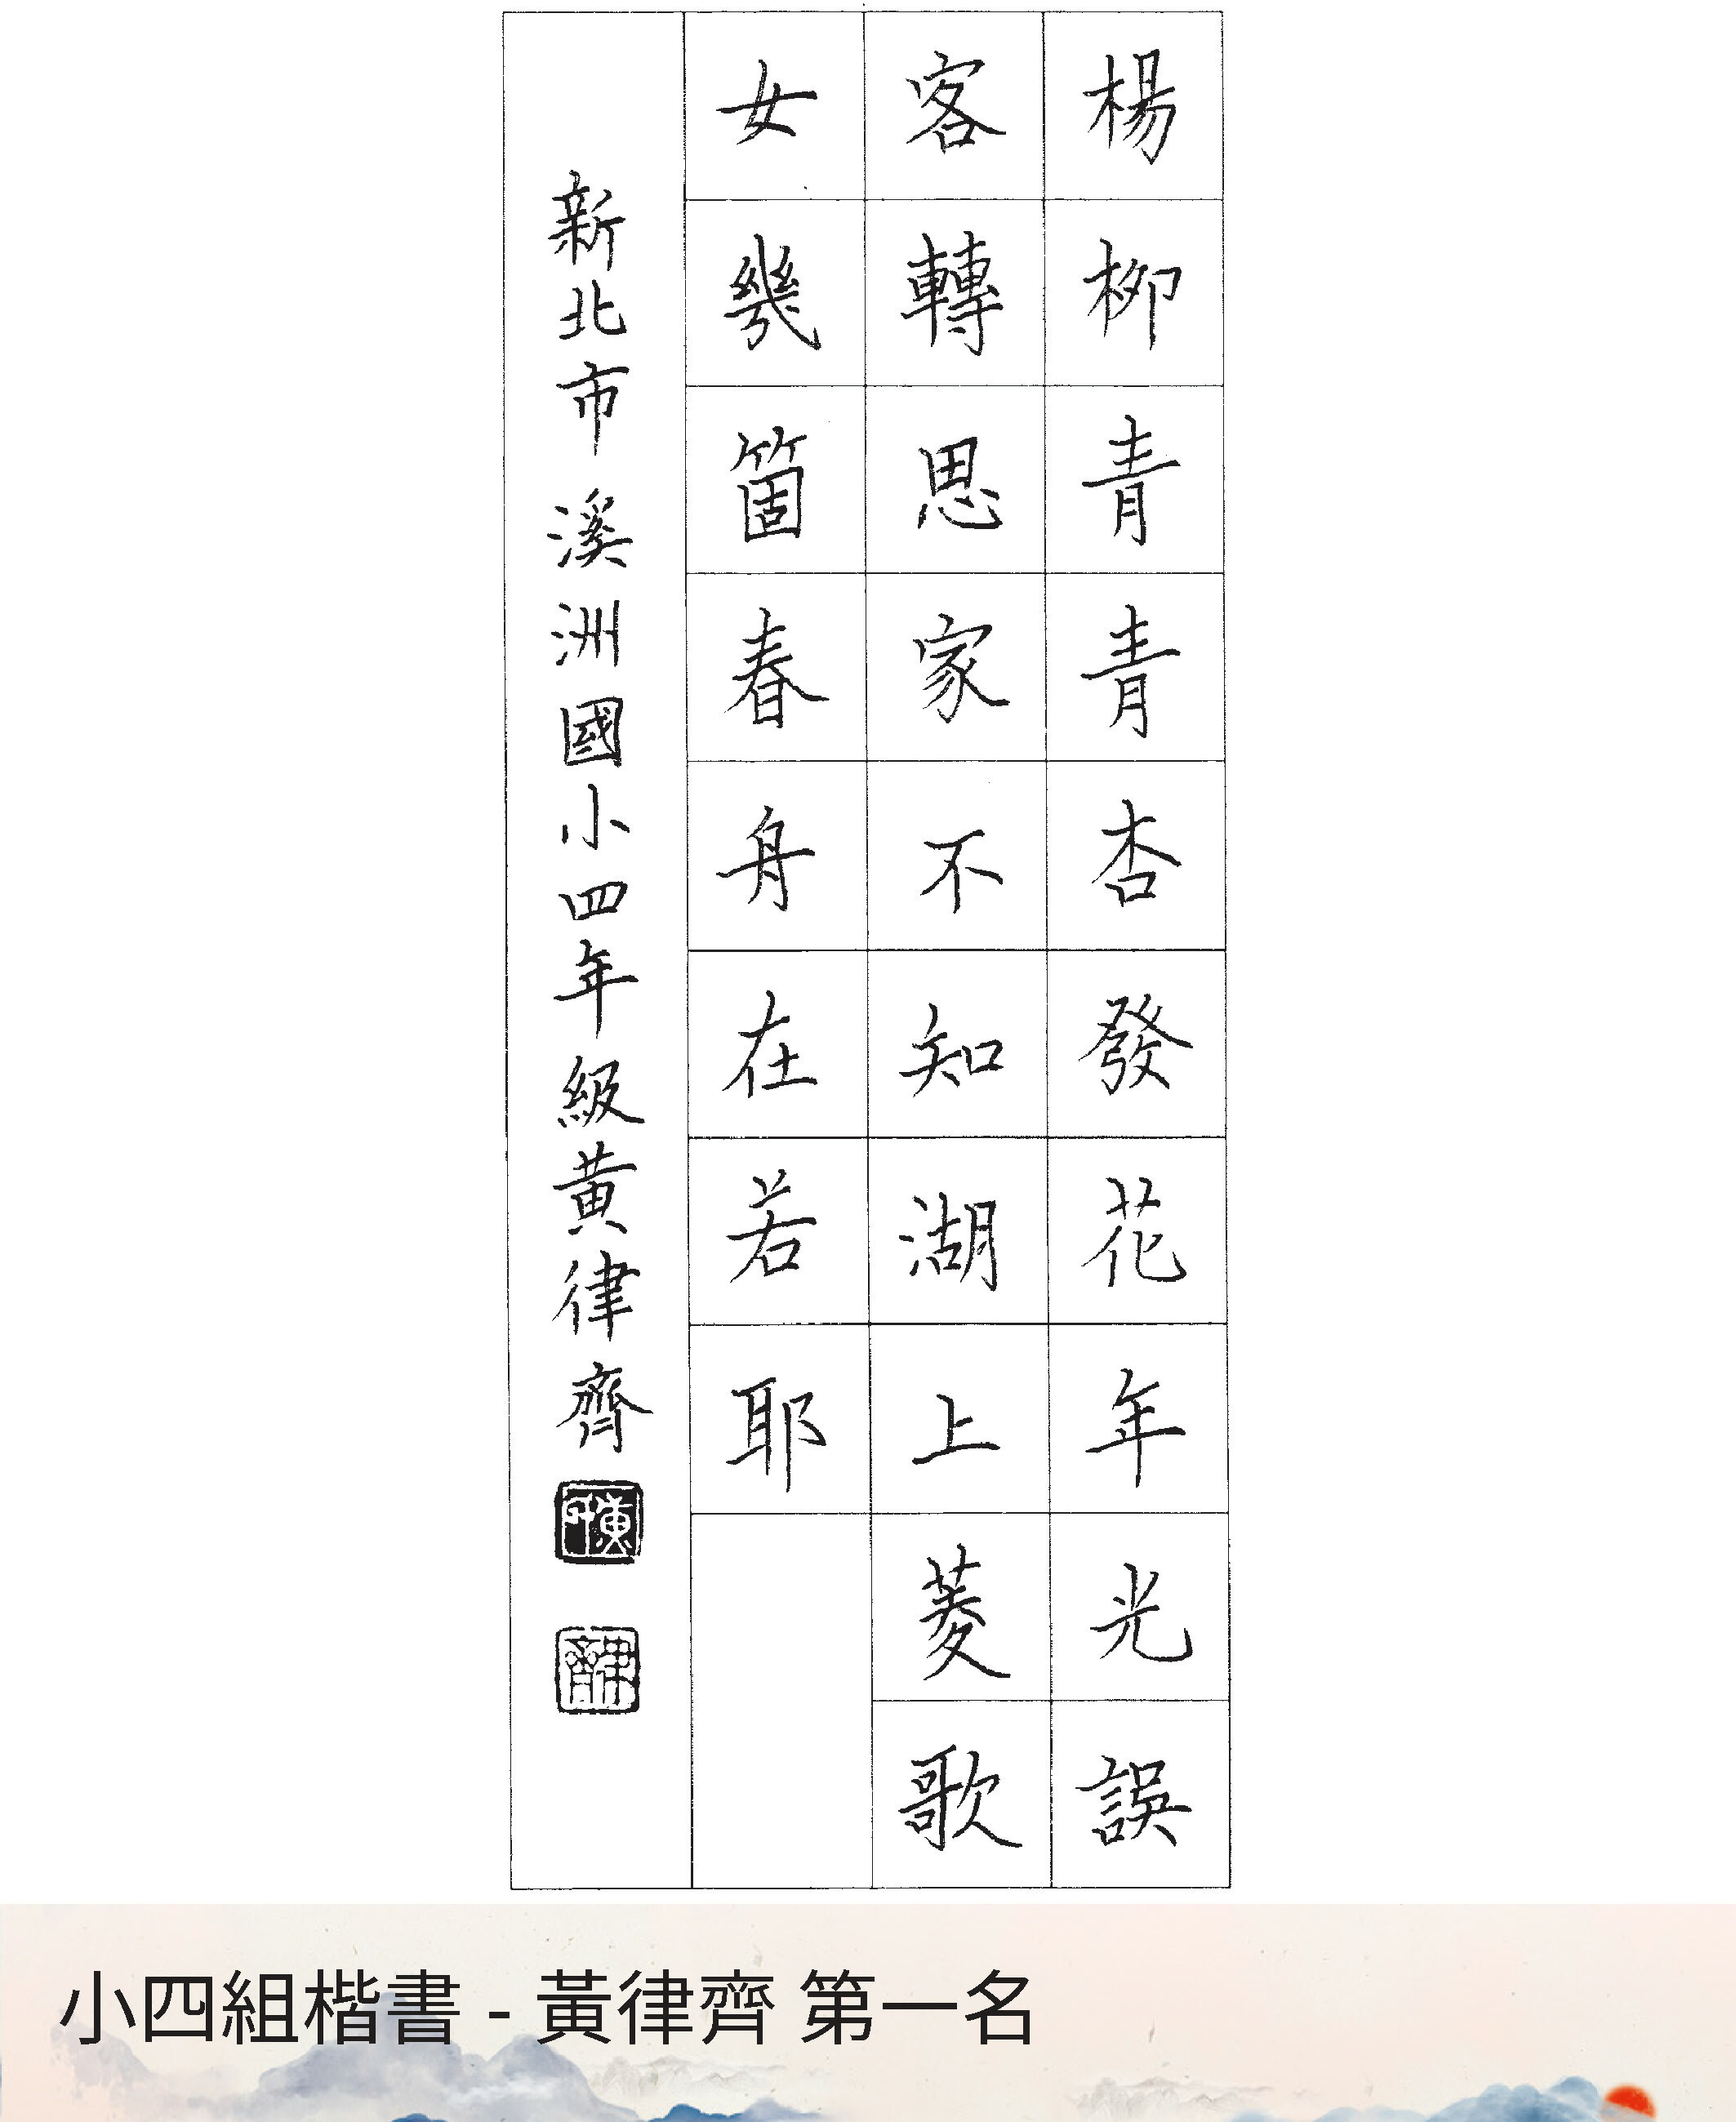 楊柳青青杏發花年光誤
客轉思家不知湖上菱歌
女幾箇春舟在若耶
新北市溪洲國小四年級黃律齊
黃
律齊
小四組楷書 - 黃律齊 第一名